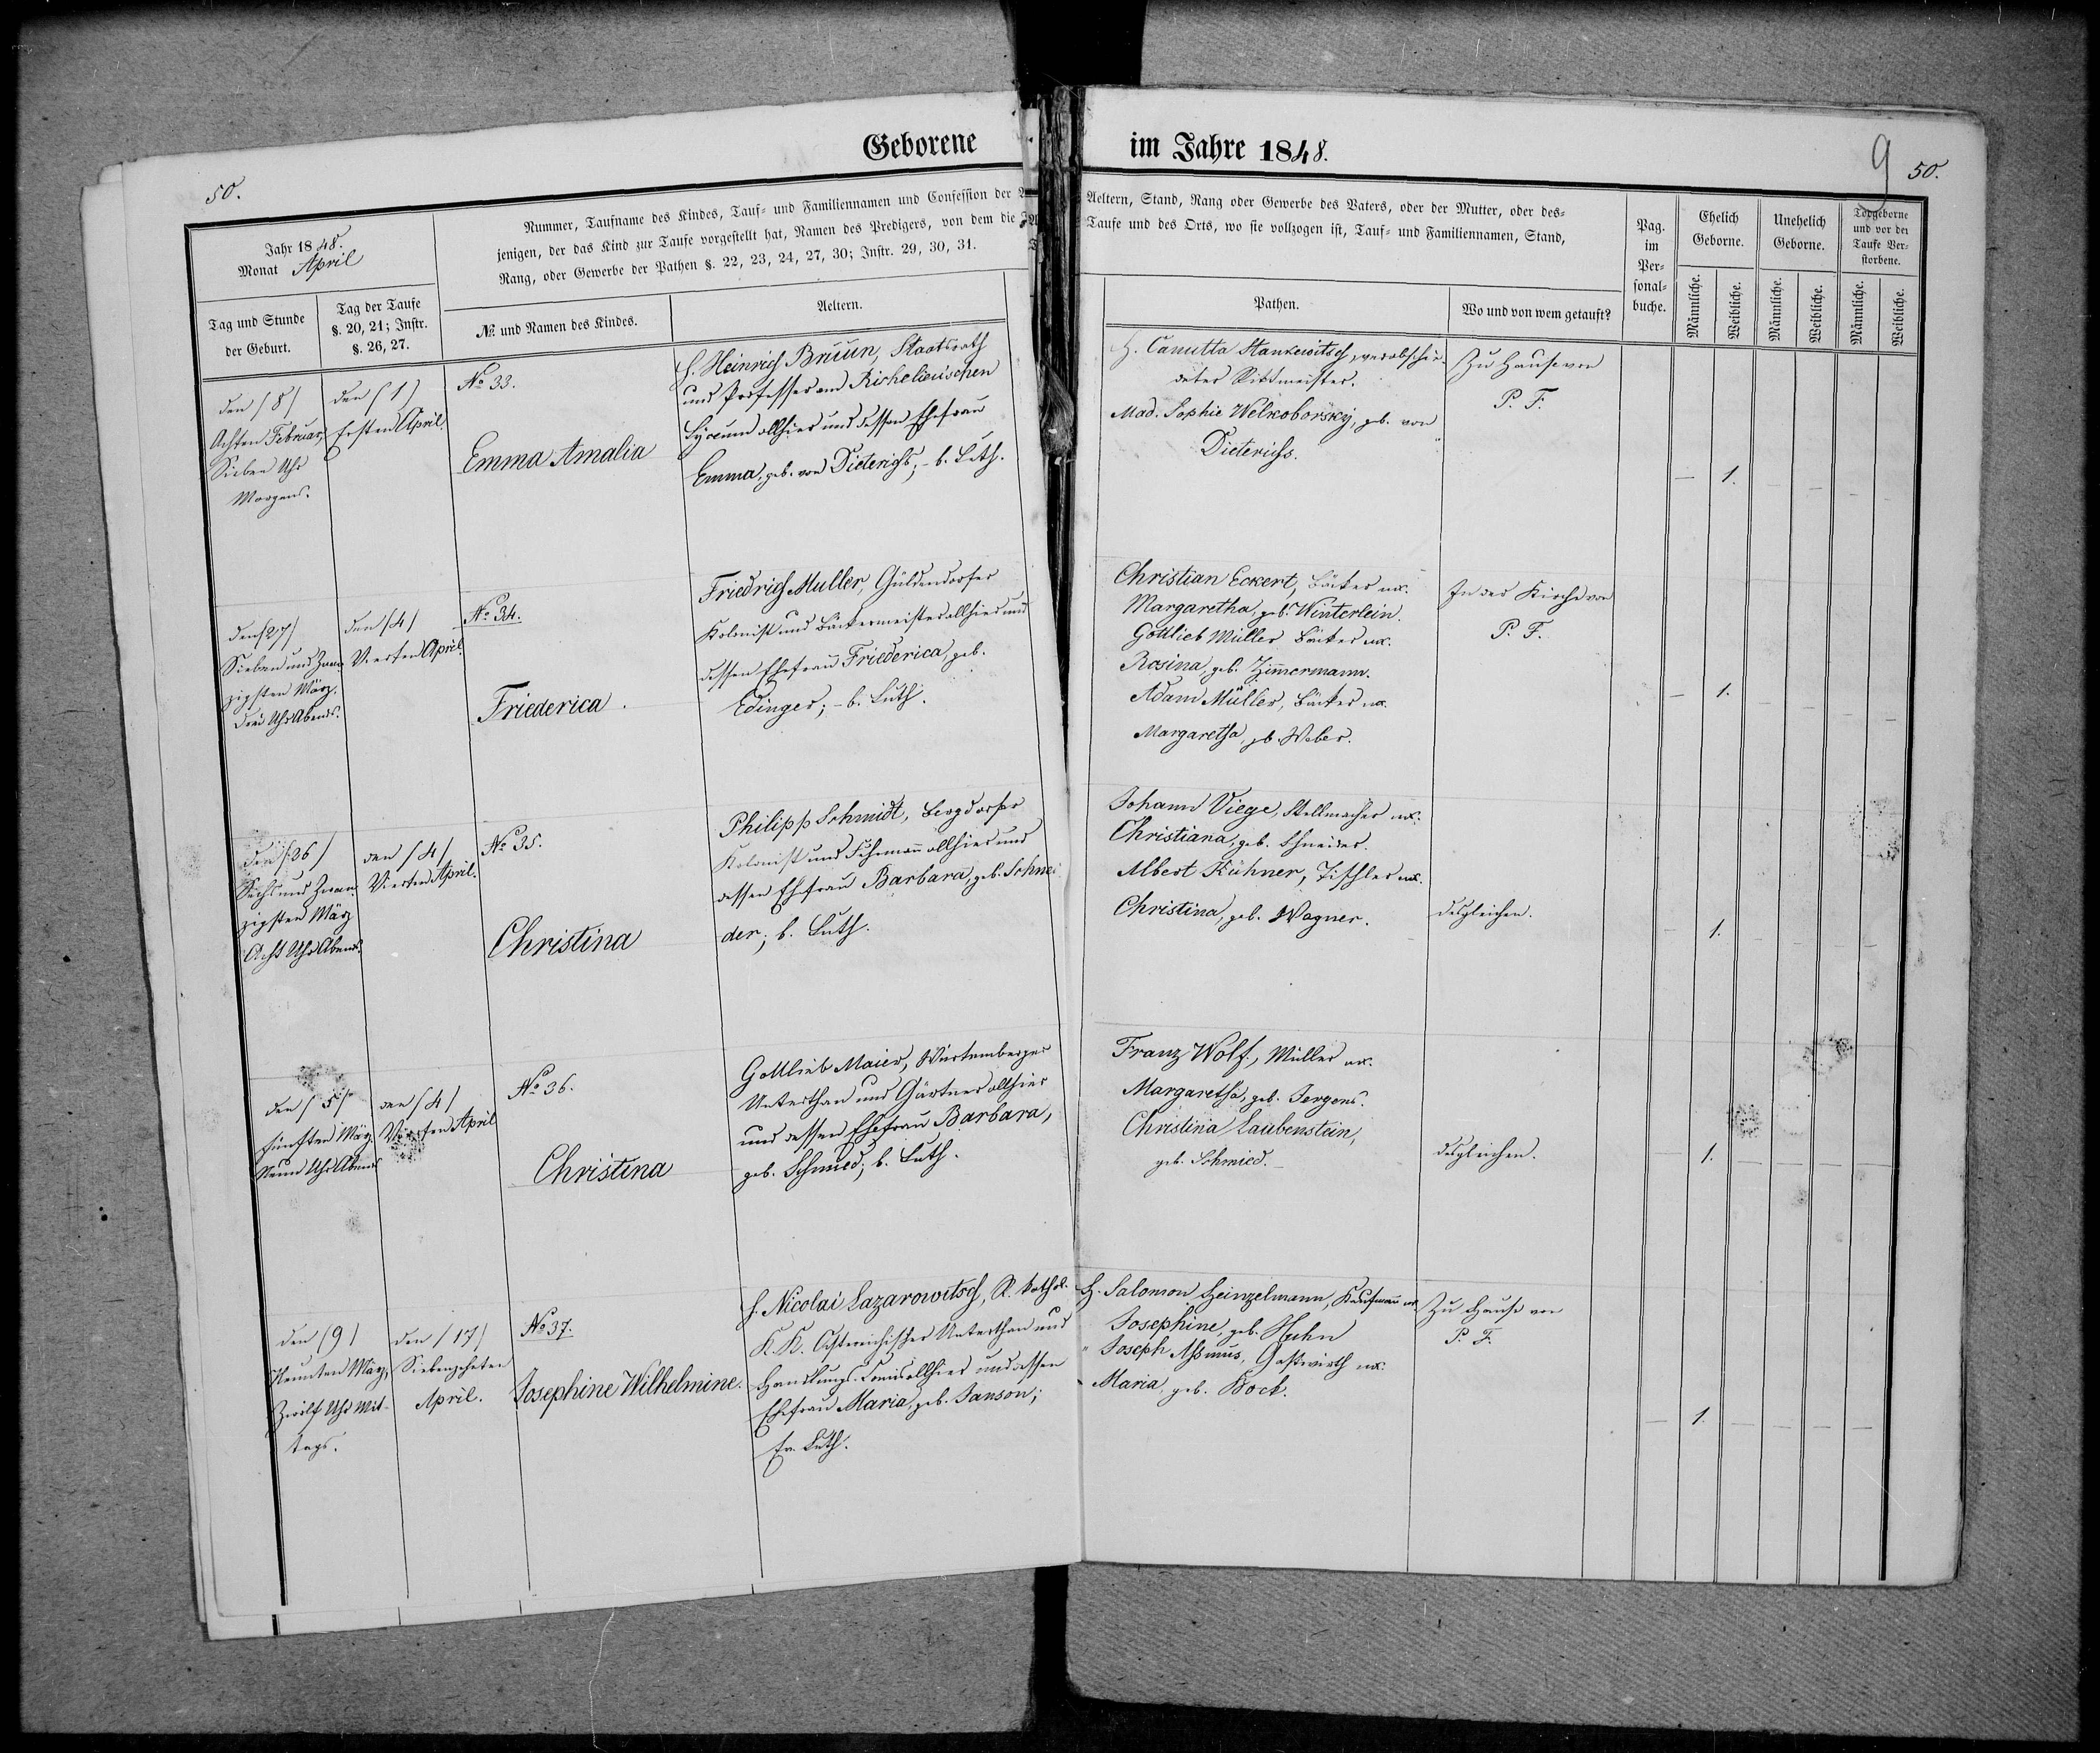 Geborene im Jahre 1848.
9
50.
50.
Jahr 1848.
Monat April
Nummer, Taufname des Kindes, Tauf- und Familiennamen und Confession der
jenigen, der das Kind zur Taufe vorgestellt hat, Namen des Predigers, von dem die
Rang, oder Gewerbe der Pathen §. 22, 23, 24, 27, 30; Instr. 29, 30, 31.
Aeltern, Stand, Rang oder Gewerbe des Vaters, oder der Mutter, oder des-
Taufe und des Orts, wo sie vollzogen ist, Tauf- und Familiennamen, Stand,
Tag und Stunde
der Geburt.
Tag der Taufe
§. 20, 21; Instr.
§. 26, 27.
№ und Namen des Kindes.
Aeltern.
Pathen.
Wo und von wem getauft?
Pag.
im
Per-
sonal-
buche.
Ehelich
Geborne.
Unehelich
Geborne.
Todgeborne
und vor der
Taufe Ver-
storbene.
Männliche.
Weibliche.
Männliche.
Weibliche.
Männliche.
Weibliche.
den /8/
Achten Februar,
Sieben Uhr
Morgens.
den /1/
Ersten April.
No 33.
Emma Amalia
H. Heinrich Bruun, Staatsrath
und Professor am Richelieuschen
Lyceum allhier und dessen Ehefrau
Emma, geb. von Dieterichs; - b. Luth.
H. Canutta Stankewitsch, verabschie-
deter Rittmeister.
Mad. Sophie Welkoborsky, geb. von
Dieterichs.
Zu Hause von
P. F.
— 1. — — — —
den /27/
Sieben und Zwan-
zigsten März.
Drei Uhr Abends.
den /4/
Vierten April.
No 34.
Friederica.
Friedrich Muller, Güldendorfer
Kolonist und Bäckermeister allhier und
dessen Ehefrau Friederica, geb.
Edinger; - b. Luth.
Christian Eckert, Bäcker ux.
Margaretha, geb. Winterlein.
Gottlieb Müller Bäcker ux.
Rosina, geb. Zimmermann.
Adam Müller, Bäcker ux.
Margaretha, geb. Weber.
In der Kirche von
P. F.
— 1. — — — —
den /26/
Sechs und Zwan-
zigsten März
Acht Uhr Abends.
den /4/
Vierten April.
No 35.
Christina
Philipp Schmidt, Bergdorfer
Kolonist und Fuhrmann allhier und
dessen Ehefrau Barbara, geb. Schnei-
der; b. Luth.
Johann Viege, Stellmacher ux.
Christiana, geb. Schneider.
Albert Kühner, Tischler ux.
Christina, geb. Wagner.
desgleichen.
— 1. — — — —
den /5/
fünften März
Neun Uhr Abends
den /4/
Vierten April
No 36.
Christina
Gottlieb Maier, Würtemberger
Unterthan und Gärtner allhier
und dessen Ehefrau Barbara,
geb. Schmied; b. Luth.
Franz Wolf, Müller ux.
Margaretha, geb. Jergens.
Christina Laubenstein,
geb. Schmied.
desgleichen.
1. — — — —
den /9/
Neunten März,
Zwölf Uhr Mit-
tags.
den /17/
Siebenzehnten
April.
No 37.
Josephine Wilhelmine.
H. Nicolai Lazarowitsch, R. kathol.
K. K. Östreichischer Unterthan und
Handlungs-Comis allhier und dessen
Ehefrau Maria, geb. Janson;
Ev. Luth.
H. Salomon Heinzelmann, Kaufmann ux.
Josephine, geb. Huhn
" Joseph Assmus, Gastwirth ux.
Maria, geb. Bock.
Zu Hause von
P. F.
— 1. — — — —